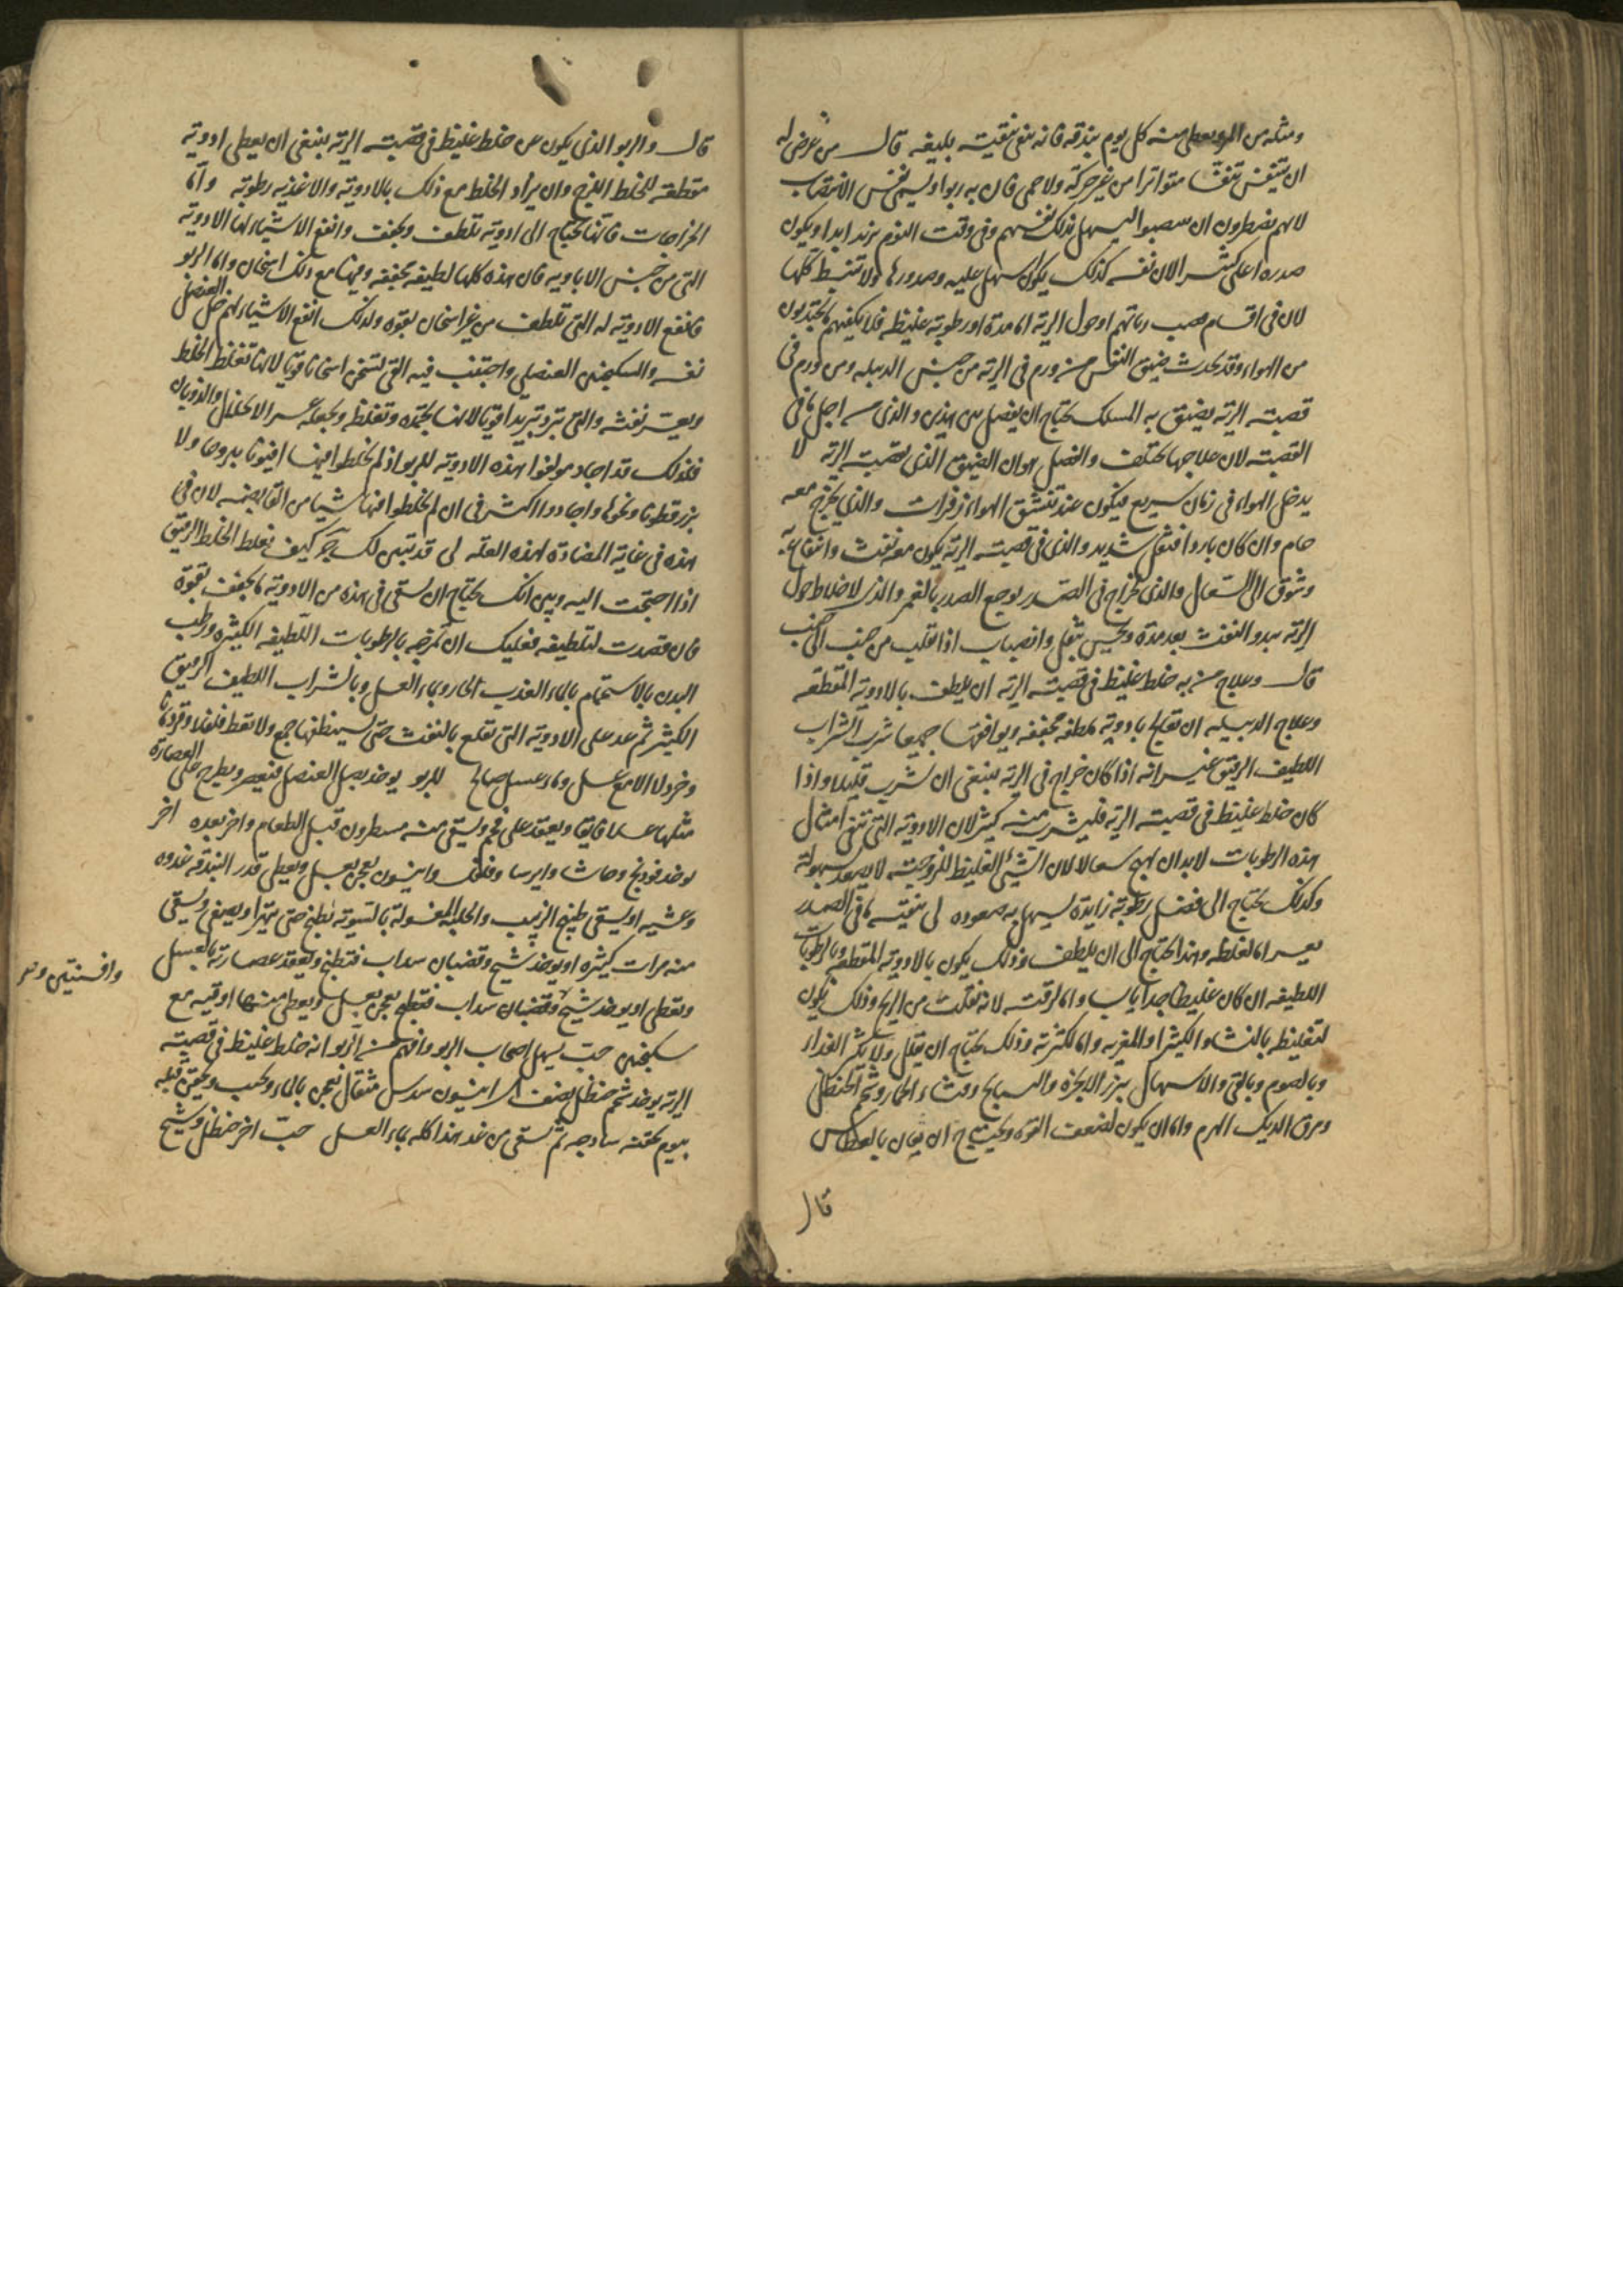 ومثله من المر ويعطى منه كل يوم بندقه فانه ينقى تنقيته بليغه قال من عرض له
ان يتنفس تنفسا متواترا من غير حركة ولا حمى فان به ربوا ويسمى نفس الانتصاب
لانهم يضطرون ان ليسهل بذلك نفسهم وفى وقت النوم ابدا ويكون
صدره اعلى لان نفسه كذلك يكون اسهل عليه وصدورها ولا تنبسط كلها
لان فى اقسام قصب رياتهم او حول الرية اما مدة او رطوبة غليظه فلا يكفيهم ما يجتذبون
من الهواء وقد يحدث ضيق النفس من ورم فى الرية من جنس الدبيله ومن ورم فى
قصبة الرية يضيق به المسلك يحتاج ان يفصل بين هذين والذى من اجل ما فى
القصبة لان علاجها مختلف والفصل هو ان الضيق الذى لقصبة الرية لا
يدخل الهواء فى زمان سريع فيكون عند تنشق الهواء زفرات والذى يخرج معه
حام وان كان باردا فثقل شديد والذى فى قصبة الرية يكون معه نفث وانتفاع به
وشوق الى السعال والذى لخراج فى الصدر يوجع الصدر بالغمز والذى لاخلاط حول
الرية يبدو النفث بعد مدة ويحس بثقل وانصباب اذا انقلب من جنب الى جنب
قال وعلاج من به خلط غليظ فى قصبة الرية ان يلطف بالادوية المقطعه
وعلاج الدبيله ان تعالج بادوية ملطفه مجففه ويوافقها جميعا شرب الشراب
اللطيف الرقيق غير انه اذا كان خراج فى الرية ينبغى ان يشرب قليلا واذا
كان خلط غليظ فى قصبة الرية فليشرب منه كثير لان الادوية التى تنقى امثال
هذه الرطوبات لابد ان تهيج سعالا لان الشئ الغليظ للزوجته لا يصعد بسهولة
وكذلك يحتاج الى فضل رطوبة زايدة ليسهل به صعوده لى تنقية ما فى الصدر
يعسر اما لغلظه وهذا يحتاج الى ان يلطف وذلك يكون بالادوية المقطعه وبالرطوبات
اللطيفه ان كان غليظا جدا يابسا واما لرقته لانه تفلت من الريح وذلك يكون
لتغليظه بالنشا والكثيرا والمغريه واما لكثرته وذلك يحتاج ان يقلل ولا يكثر الغذاء
وبالصوم وبالقى والاسهال ببزر الانجرة والبسبايج وقثاء الحمار وشحم الحنظل
ومرق الديك الهرم واما ان يكون لضعف القوه ويحتاج ان يعان بالعطاس
قال
قال والربو الذى يكون عن خلط غليظ فى قصبة الرية ينبغى ان يعطى ادوية
مقطعه للخلط اللزج وان يزاد الخلط مع ذلك بالادوية والاغذيه رطوبة واما
الخراجات فانها تحتاج الى ادوية تلطف وتجفف وانفع الاشياء لها الادوية
التى من جنس الافاويه فان هذه كلها لطيفه مجففه وفيها مع ذلك اسخان واما الربو
فانفع الادوية له التى تلطف من غير اسخان بقوه ولذلك انفع الاشياء لهم خل العنصل
نفسه والسكنجبين العنصلى واجتنب فيه التى تسخن اسخانا قويا لانها تغلظ الخلط
ويعسر نفثه والتى تبرد تبريدا قويا لانها تجمده وتغلظه وتجعله عسر الانحلال والذوبان
فلذلك قد اجاد مولفوا هذه الادوية للربو اذ لم يخلطوا فيها افيونا ولا يبروحا ولا
بزر قطونا ونحوها واجادوا اكثر فى ان لم يخلطوا فيها شيا من القابضه لان فى
هذه فى غاية المضادة لهذه العله لى قد تبين لك كيف تغلظ الخلط الرقيق
اذا احتجت اليه وبين انك تحتاج ان يسقى فى هذه من الادوية ما يجفف بقوة
فان قصدت لتلطيفه فعليك ان تمزجه بالرطوبات اللطيفه الكثيره ورطب
البدن بالاستحمام بالماء العذب الحار وبماء العسل وبالشراب اللطيف الرقيق
الكثير ثم عد على الادوية التى تقلع بالنفث حتى يستنظفها جمع ولا تعط فلفلا وقردمانا
وخردلا الا مع عسل وماء عسل صالح للربو يوخذ بصل العنصل فيعصر ويطرح على العصارة
مثلها عسلا فايقا ويعقد على فحم ويسقى منه مسطرون قبل الطعام واخر بعده اخر
يوخذ فودنج وحاشا وايرسا وفلفل وانيسون يعجن بعسل ويعطى قدر البندقه غدوه
وعشيه او يسقى طبيخ الزبيب والحلبه المغسولة بالسوية يطبخ حتى يتهرا ويصفى ويسقى
منه مرات كثيره او يوخذ شيح وقضبان سداب فتطبخ ويعقد عصارته بالعسل
ويعطى او يوخذ شيح وقضبان سداب فتطبخ يعجن بعسل ويعطى منها اوقيه مع
وافسنتين
سكنجبين حب يسهل اصحاب الربو وافهم من الربو انه خلط غليظ فى قصبة
الرية يوخذ شحم حنظل نصف انيسون سدس مثقال يعجن بالماء ويحبب ويحقن قبله
بيوم بحقنه ساذجه ثم يسقى من غد هذا كله بماء العسل حب اخر حنظل وشيح